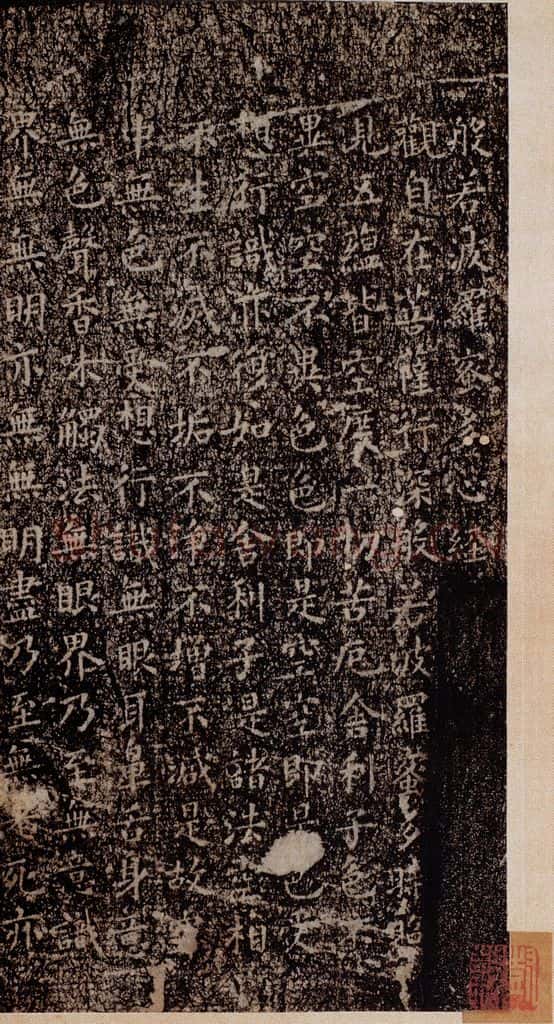 般若波羅蜜多心経
觀自在菩薩行深般若波羅蜜多時照
見五蘊皆空度一切苦厄舍利子色不
異空空不異色色即是空空即是色受
想行識亦復如是舍利子是諸法空相
不生不滅不垢不净不增不減是故空
中無色無受想行識無眼耳鼻舌身意
無色聲香味觸法無眼界乃至無意識
界無無明亦無無明盡乃至無老死亦